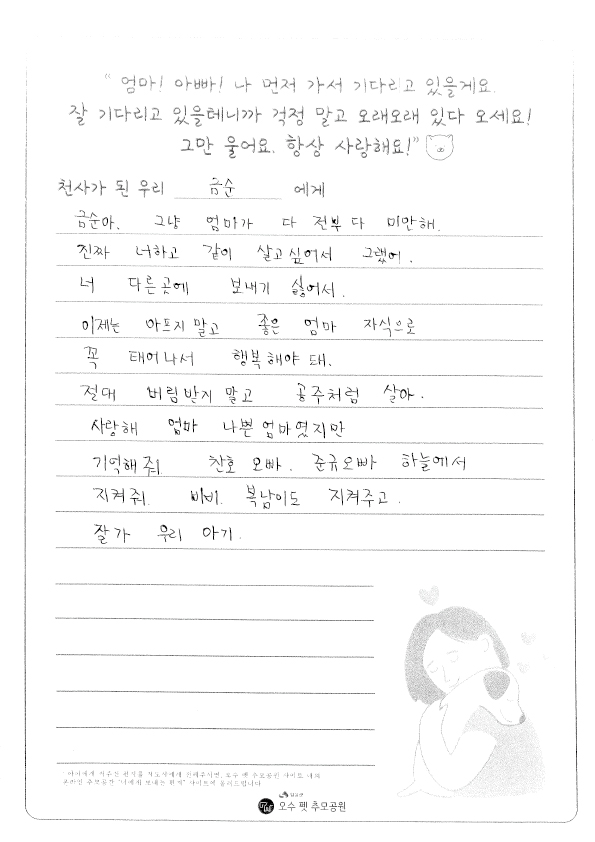 "엄마! 아빠! 나 먼저 가서 기다리고 있을게요.
잘 기다리고 있을테니까 걱정 말고 오래오래 있다 오세요!
그만 울어요. 항상 사랑해요!"
천사가 된 우리 금순 에게
금순아. 그냥 엄마가 다 전부 다 미안해.
진짜 너하고 같이 살고싶어서 그랬어.
너 다른곳에 보내기 싫어서.
이제는 아프지 말고 좋은 엄마 자식으로
꼭 태어나서 행복해야 돼.
절대 버림받지 말고 공주처럼 살아.
사랑해 엄마 나쁜엄마였지만
기억해줘. 찬호 오빠. 준규오빠 하늘에서
지켜줘. 비비. 복남이도 지켜주고.
잘가 우리 아기.
오수 펫 추모공원 사이트 내의
온라인 추모공간 사이트에 올려드립니다
오수 펫 추모공원